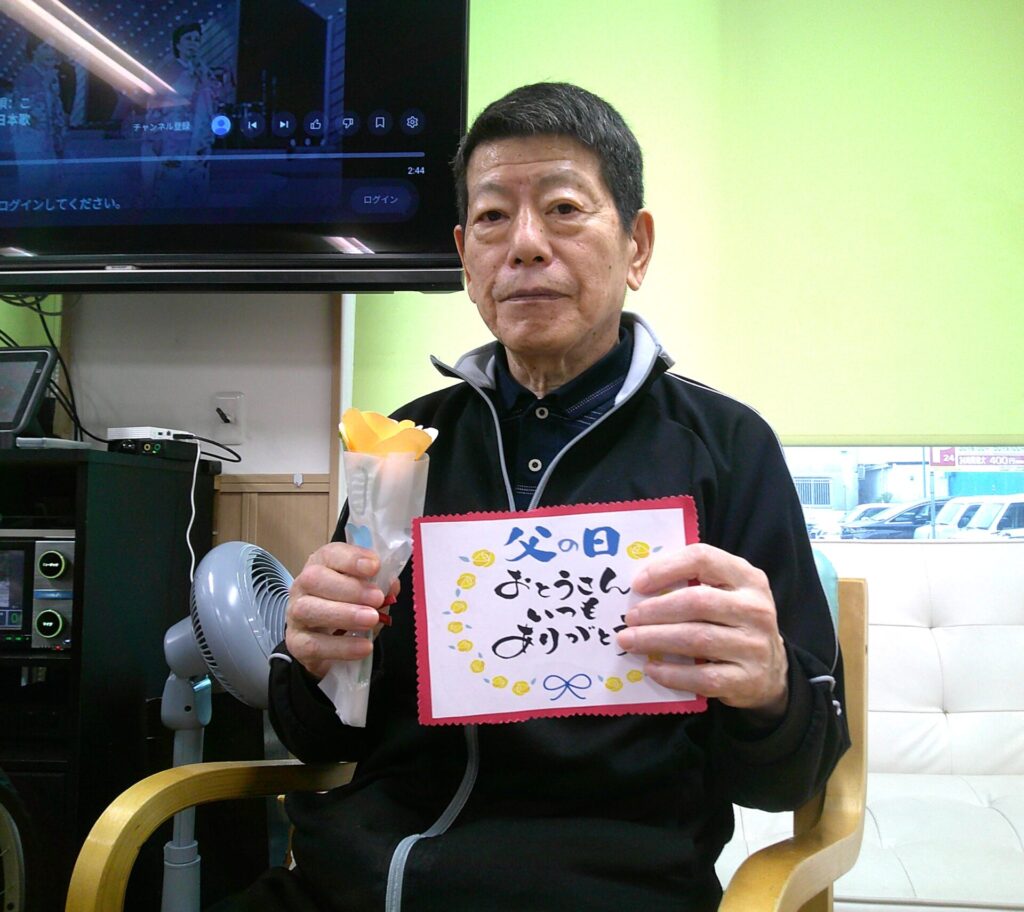 唄：こ
日本歌
チャンネル登録
2:44
ログインしてください。
ログイン
24
400円
父の日
おとうさん
いつも
ありがとう